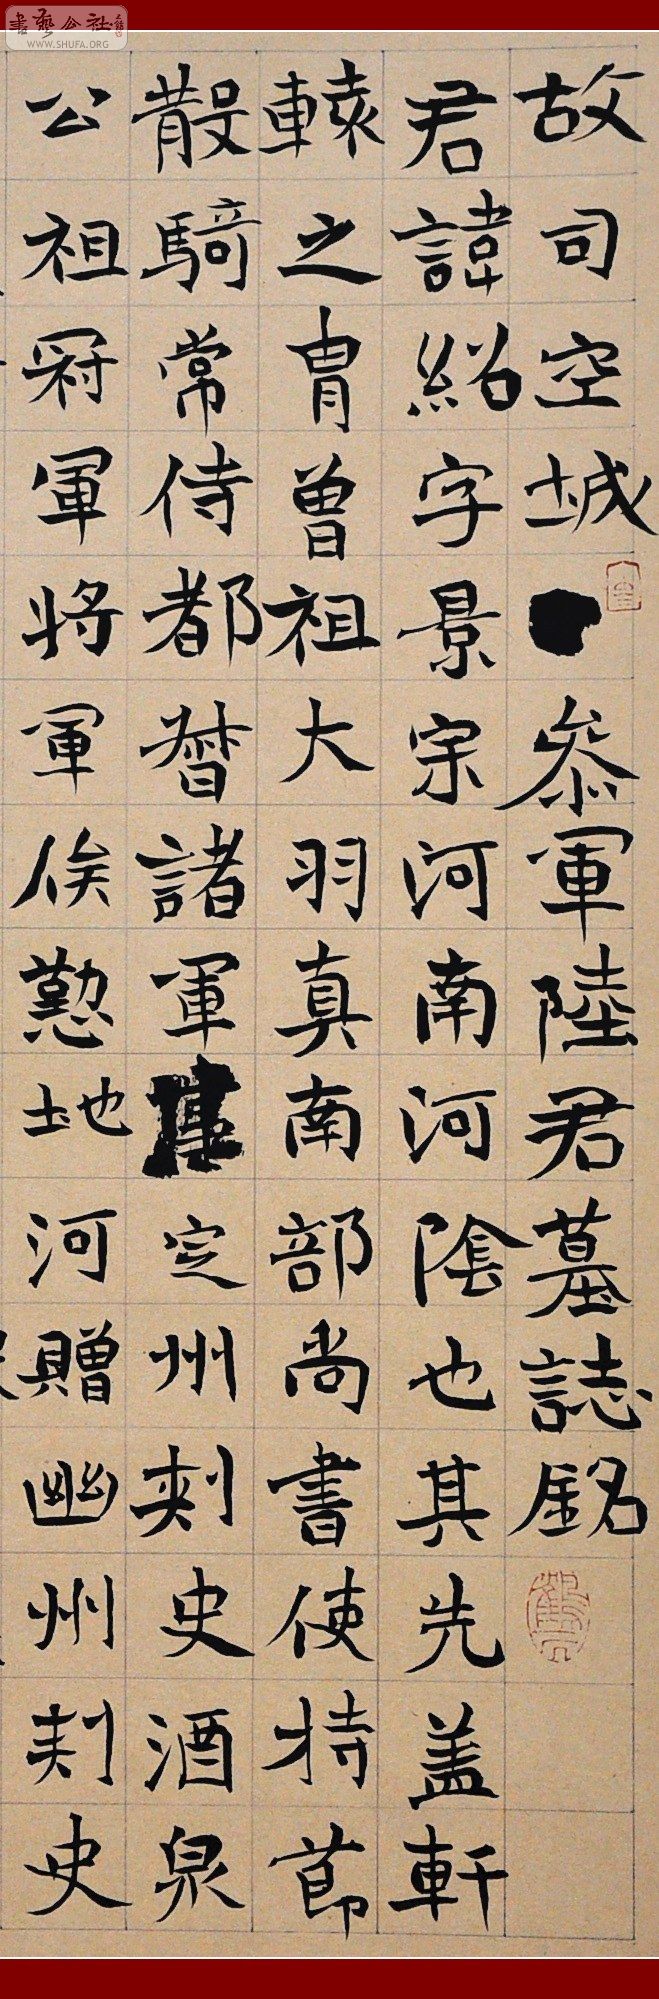 書藝公社
WWW.SHUFA.ORG
故司空城参軍陸君墓誌銘
君諱紹字景宗河南河陰也其先盖軒
轅之胄曾祖大羽真南部尚書使持節
散騎常侍都督諸軍定州刺史酒泉
公祖冠軍將軍俟懃地河贈幽州刺史